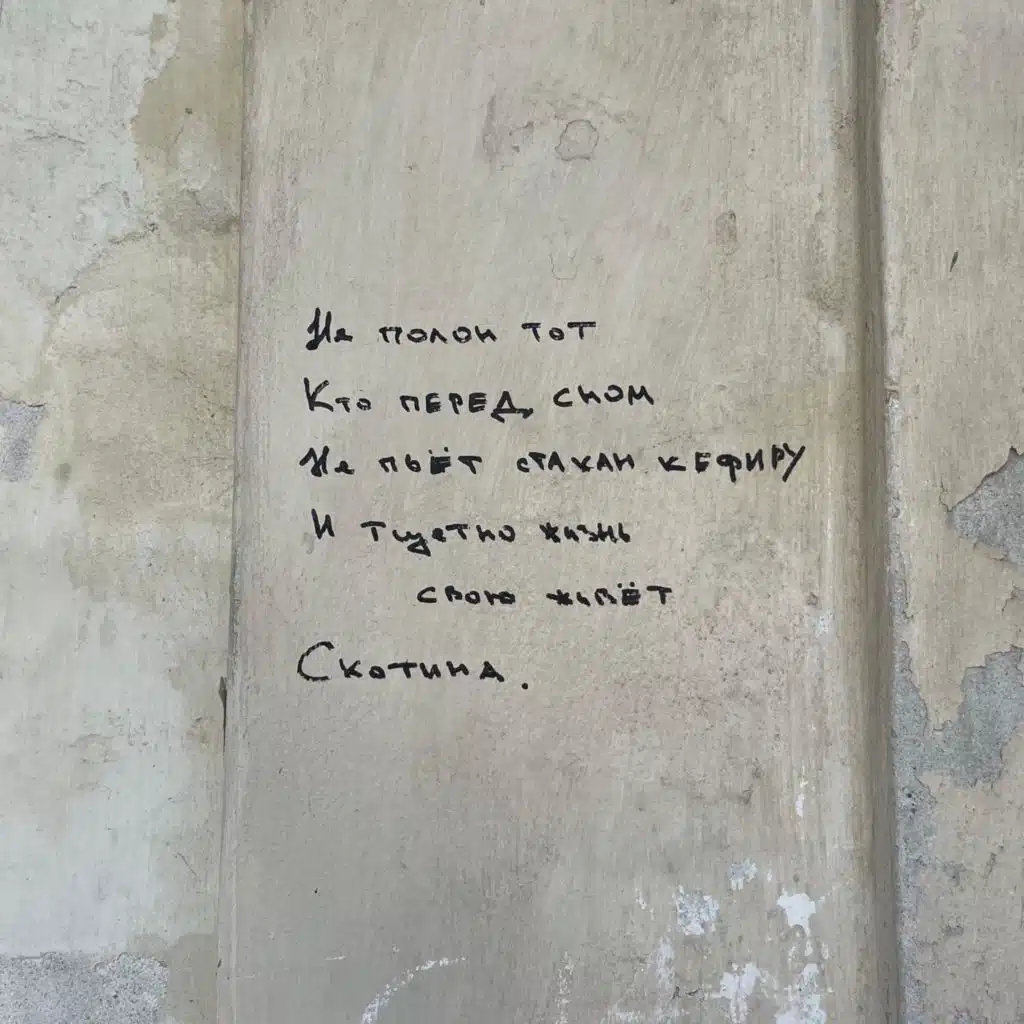 Не полон тот
Кто перед сном
Не пьёт стакан кефиру
И тщетно жизнь
свою живёт
Скотина.